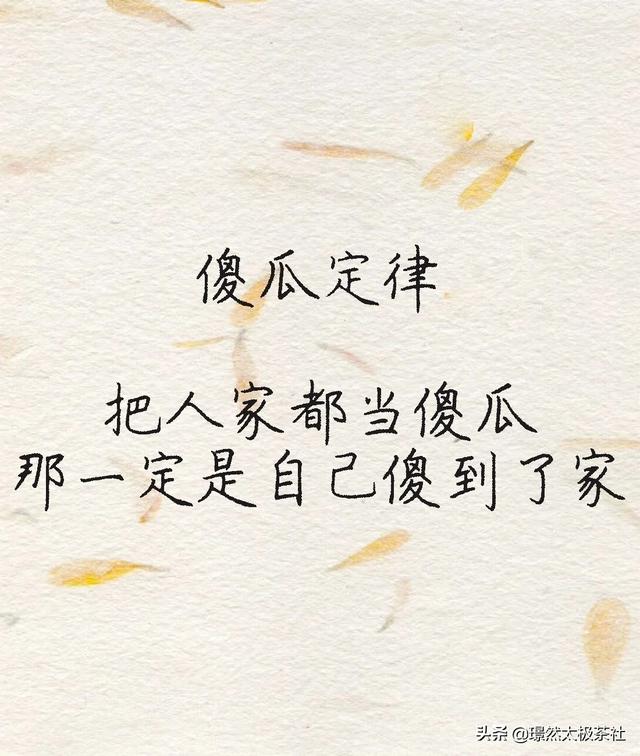 傻瓜定律
把人家都当傻瓜
那一定是自己傻到了家
头条 @璟然太极茶社